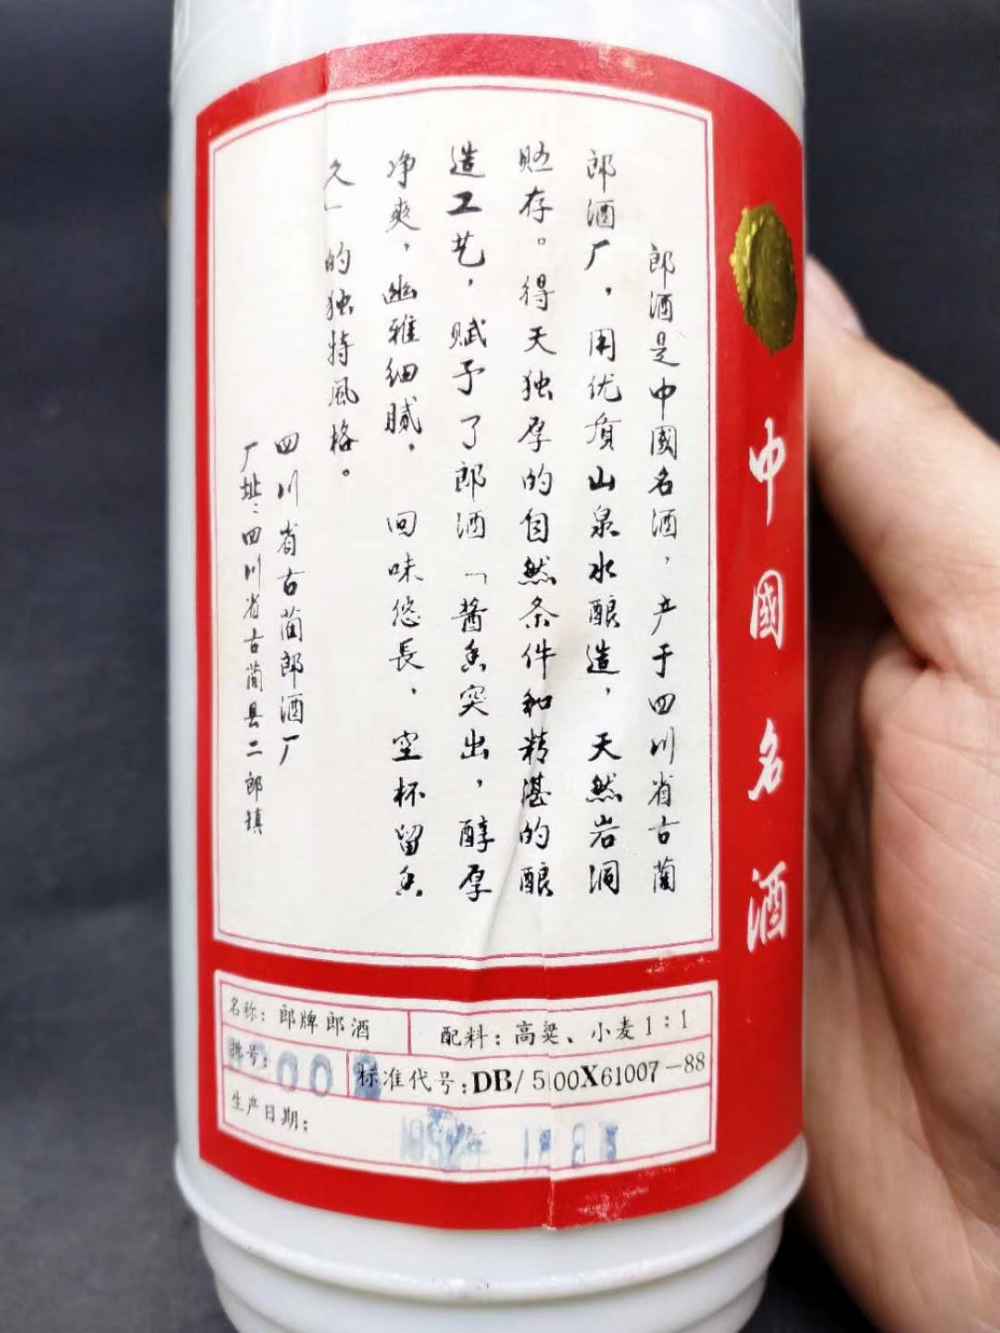 郎酒是中國名酒，产于四川省古蔺
郎酒厂，用优质山泉水酿造，天然岩洞
贮存。得天独厚的自然条件和精湛的酿
造工艺，赋予了郎酒「酱香突出，醇厚
净爽，幽雅细腻，回味悠長，空杯留香
久」的独特風格。
四川省古蔺郎酒厂
厂址：四川省古蔺县二郎镇
中國名酒
名称：郎牌郎酒
配料：高粱、小麦1：1
批号：00
标准代号：DB/500X61007-88
生产日期：